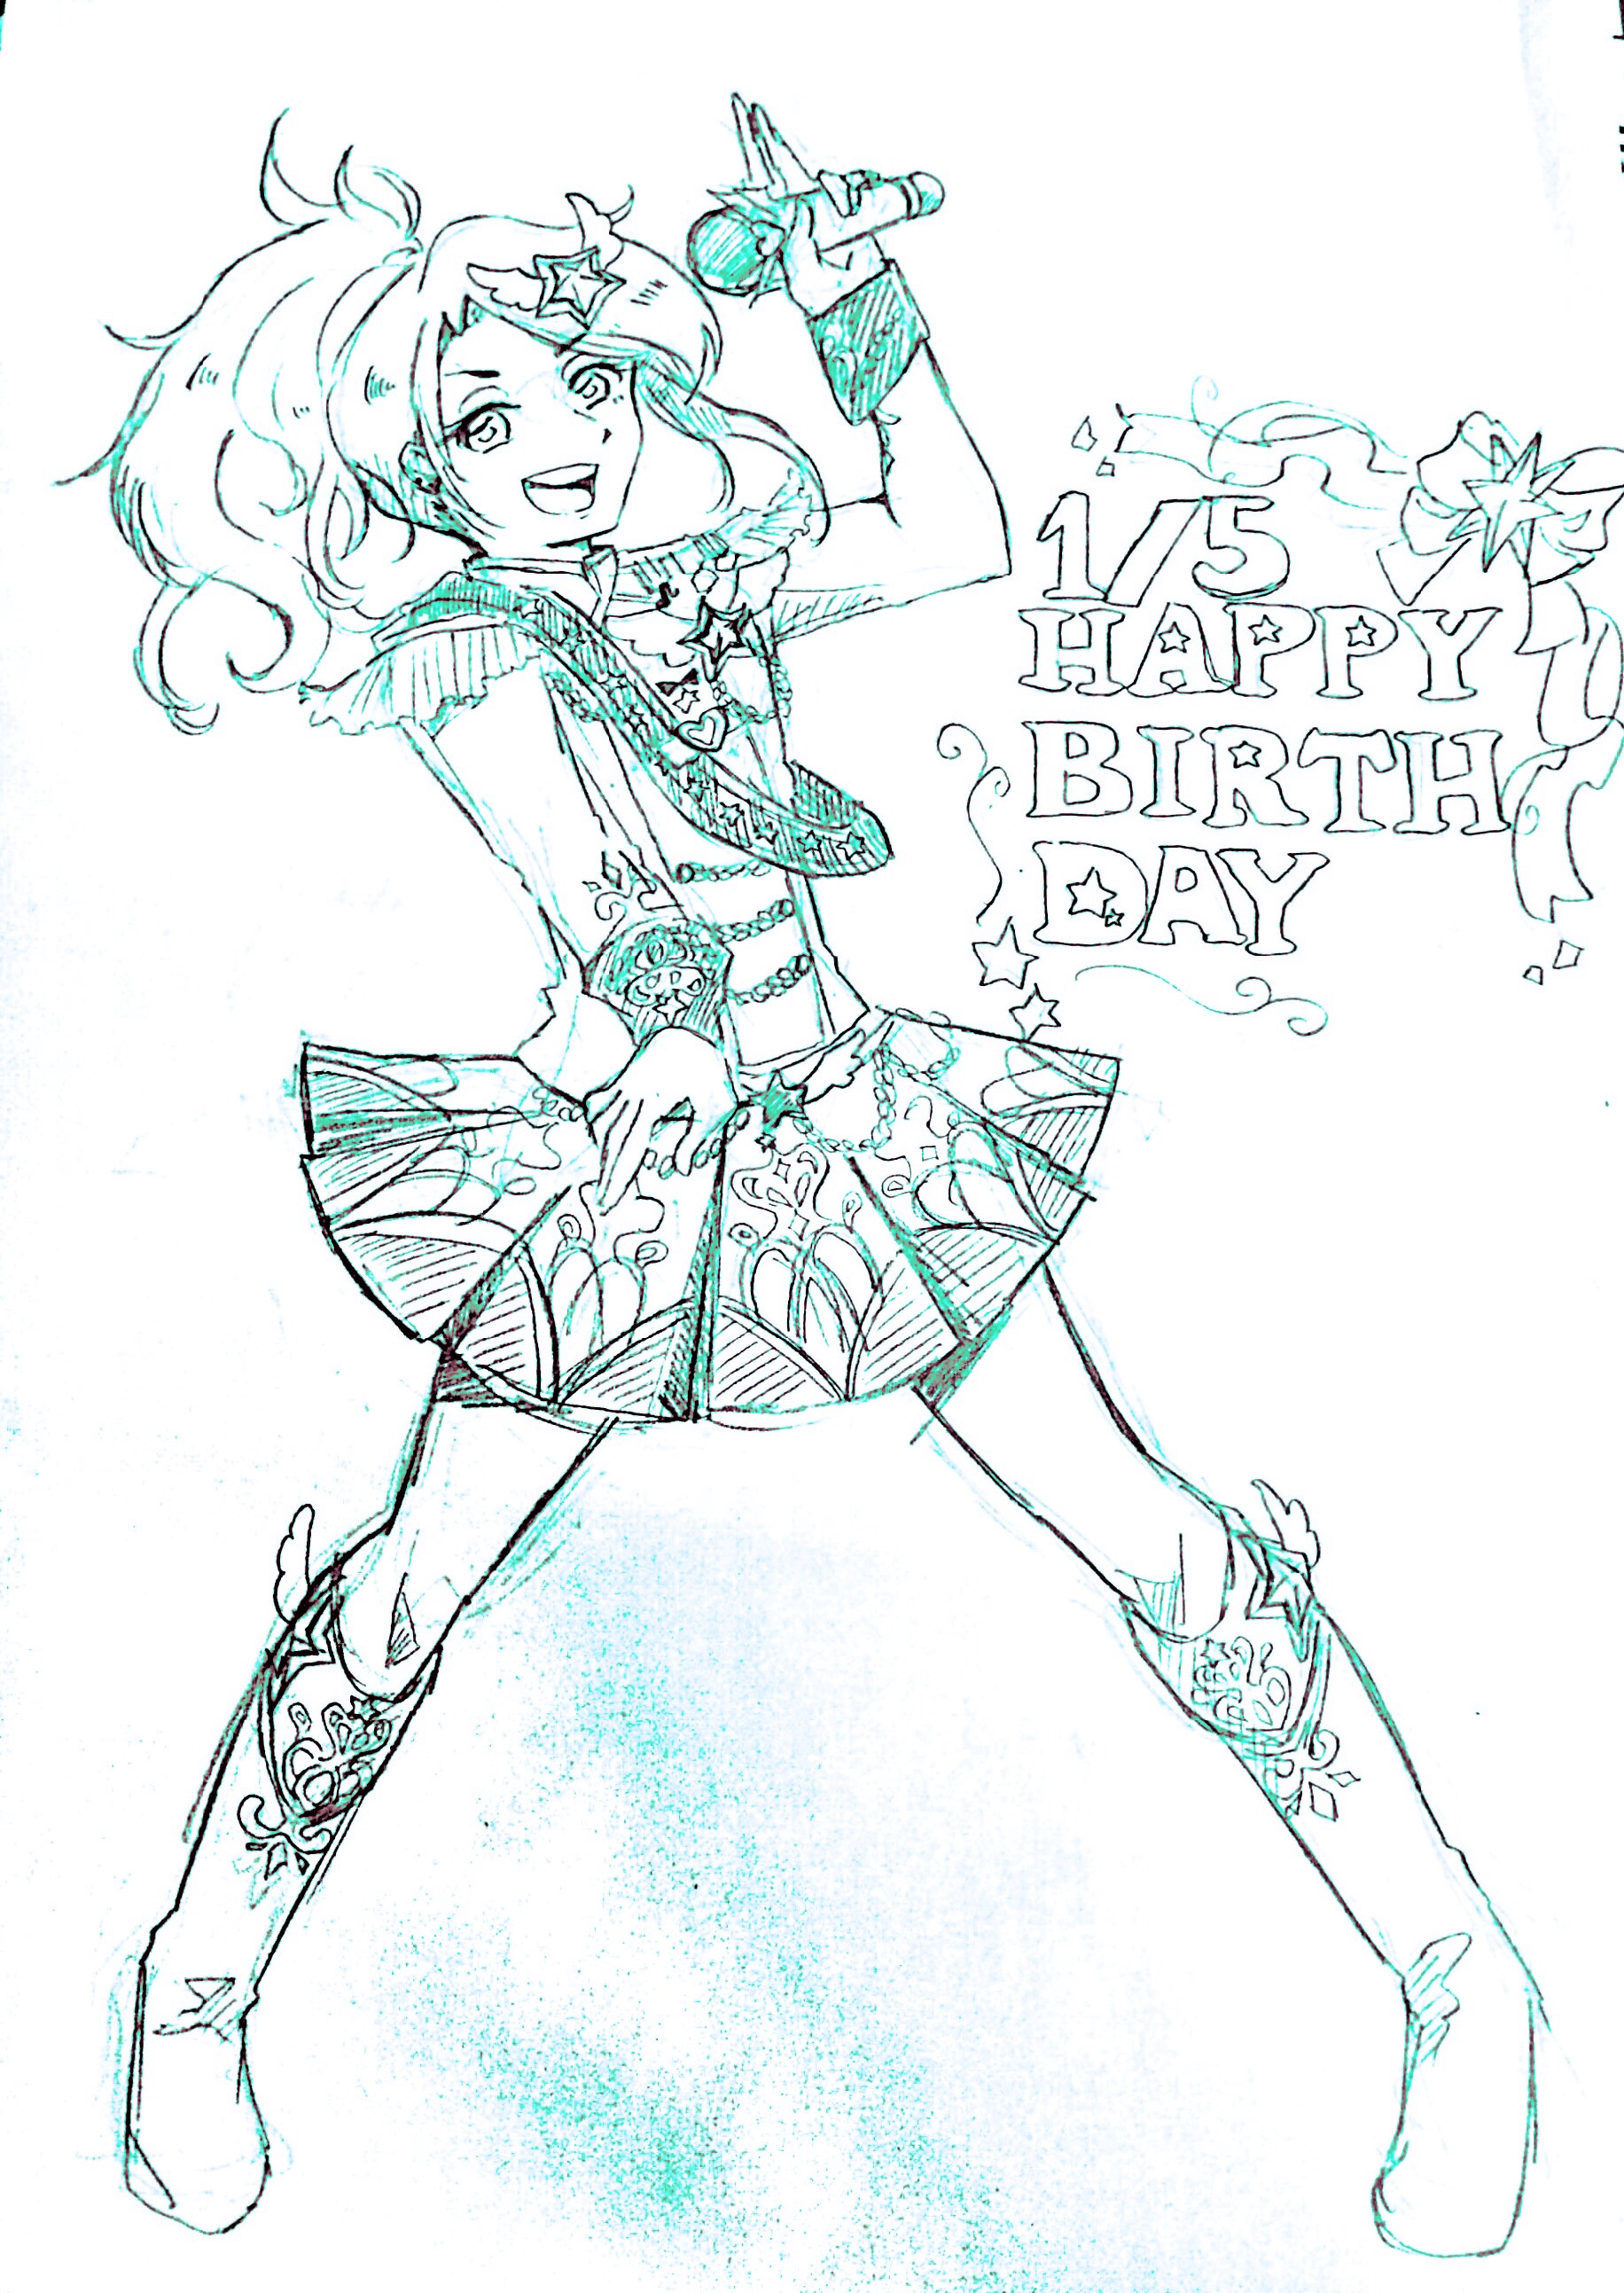 1/5
HAPPY
BIRTH
DAY